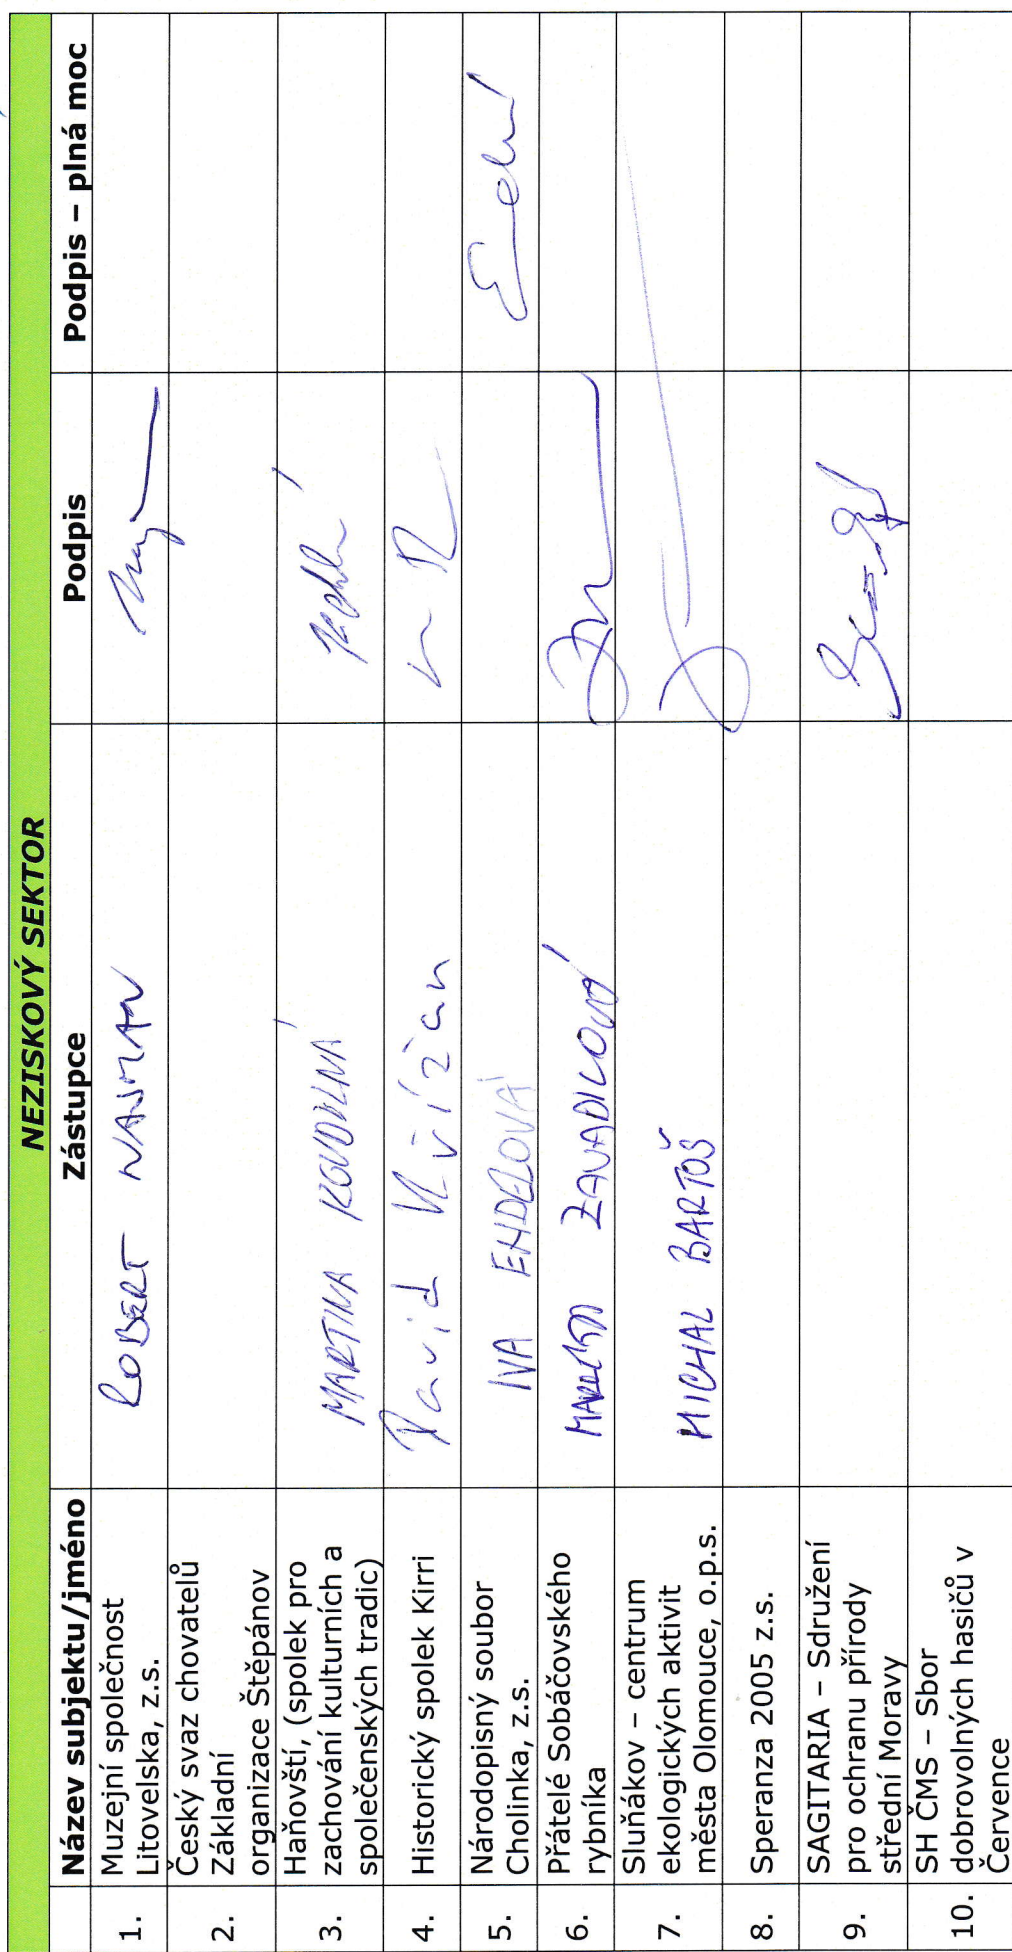 NEZISKOVÝ SEKTOR
Název subjektu/jméno Zástupce Podpis Podpis – plná moc
1. Muzejní společnost
Litovelska, z.s.
ROBERT NAJMAN
2. Český svaz chovatelů
Základní
organizace Štěpánov
3. Haňovští, (spolek pro
zachování kulturních a
společenských tradic)
MARTINA KOUDELNÁ
4. Historický spolek Kirri
David Vivízan
5. Národopisný soubor
Cholinka, z.s.
IVA ENDELOVÁ
6. Přátelé Sobáčovského
rybníka
ZAVADILOVÁ
7. Sluňákov – centrum
ekologických aktivit
města Olomouce, o.p.s.
MICHAL BARTOŠ
8. Speranza 2005 z.s.
9. SAGITARIA – Sdružení
pro ochranu přírody
střední Moravy
10. SH ČMS – Sbor
dobrovolných hasičů v
Července